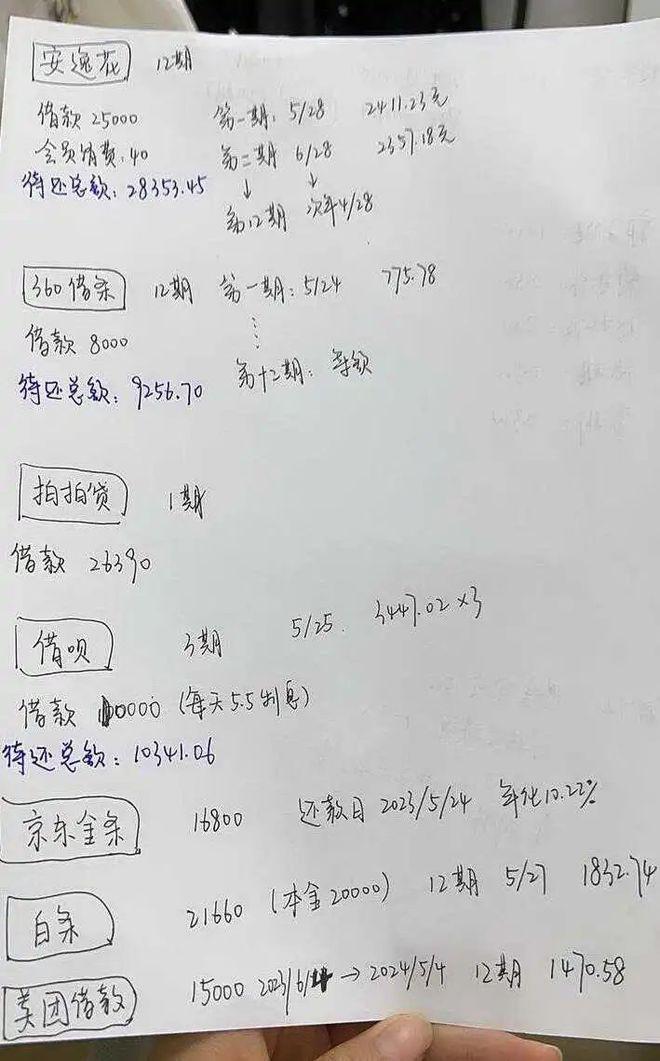 安逸花 12期
借款 25000 第一期: 5/28 2411.23元
会员消费:40 第二期 6/28 2357.18元
待还总额: 28353.45 ↓ ↓
第12期 次年4/28
360借条 12期 第一期: 5/24 775.78
借款 8000 ⋮
待还总额: 9256.70 第十二期: 等额
拍拍贷 1期
借款 26390
借呗 3期 5/25. 3447.02×3
借款 10000 (每天5.5利息)
待还总额: 10341.06
京东金条 16800 还款日 2023/5/24 年化10.22%
白条 21660 (本金20000) 12期 5/27 1832.74
美团借款 15000 2023/6/4 → 2024/5/4 12期 1470.58